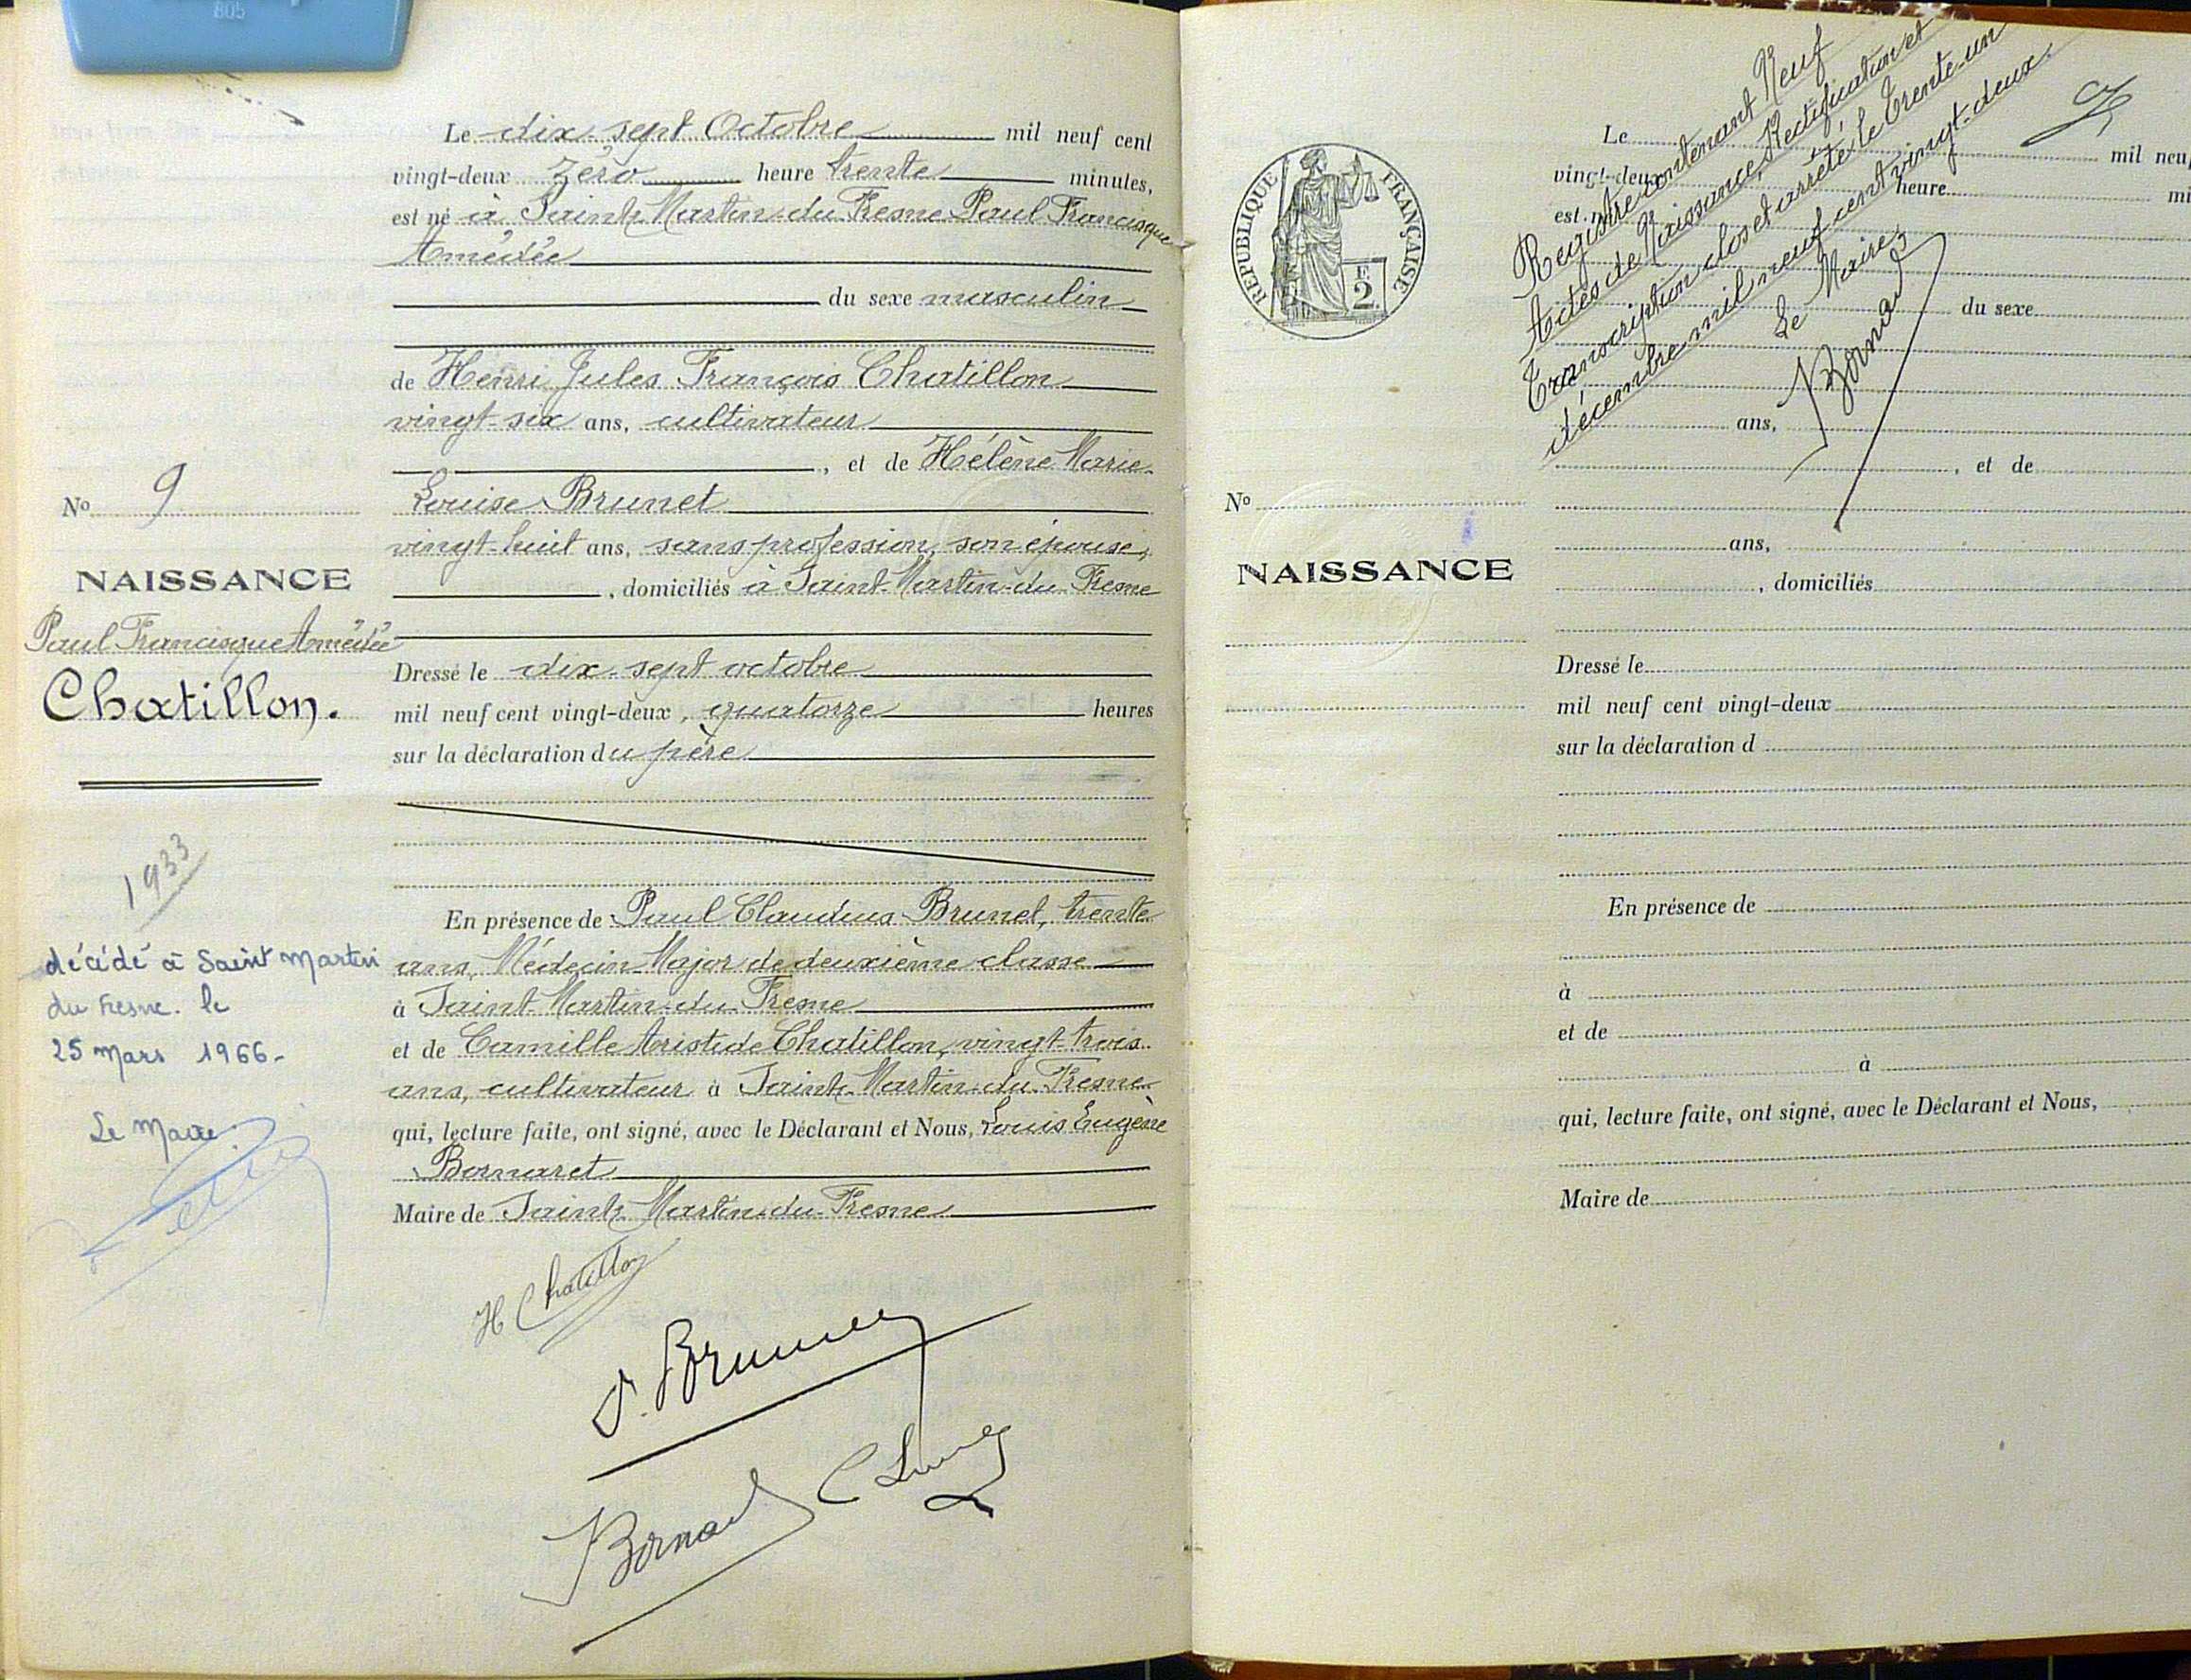 805
Le dix-sept Octobre mil neuf cent
vingt-deux zéro heure trente minutes,
est né à Saint-Martin-du-Fresne Paul Francisque
Amédée
du sexe masculin
de Henri Jules François Chatillon
vingt-six ans, cultivateur
, et de Hélène Marie
Louise Brunet
vingt-huit ans, sans profession, son épouse,
, domiciliés à Saint-Martin-du-Fresne
Dressé le dix-sept octobre
mil neuf cent vingt-deux, quatorze heures
sur la déclaration du père
En présence de Paul Claudius Brunet, trente
ans, Médecin-Major de deuxième classe
à Saint-Martin-du-Fresne
et de Camille Aristide Chatillon, vingt-trois
ans, cultivateur à Saint-Martin-du-Fresne
qui, lecture faite, ont signé, avec le Déclarant et Nous, Louis Eugène
Bornaret
Maire de Saint-Martin-du-Fresne
H Chatillon
Nº 9
NAISSANCE
Paul Francisque Amédée
Chatillon.
1933
décédé à Saint Martin
du Fresne. le
25 Mars 1966-
Le Maire.
RÉPUBLIQUE FRANÇAISE
2 F
Nº
NAISSANCE
Le mil neuf
vingt-deux heure mi
est né
du sexe
ans,
, et de
ans,
, domiciliés
Dressé le
mil neuf cent vingt-deux
sur la déclaration d
En présence de
à
et de
à
qui, lecture faite, ont signé, avec le Déclarant et Nous,
Maire de
Registre contenant Neuf
Actes de Naissance, Rectification et
Transcription clos et arrêté le trente-un
décembre mil neuf cent vingt-deux.
Le Maire,